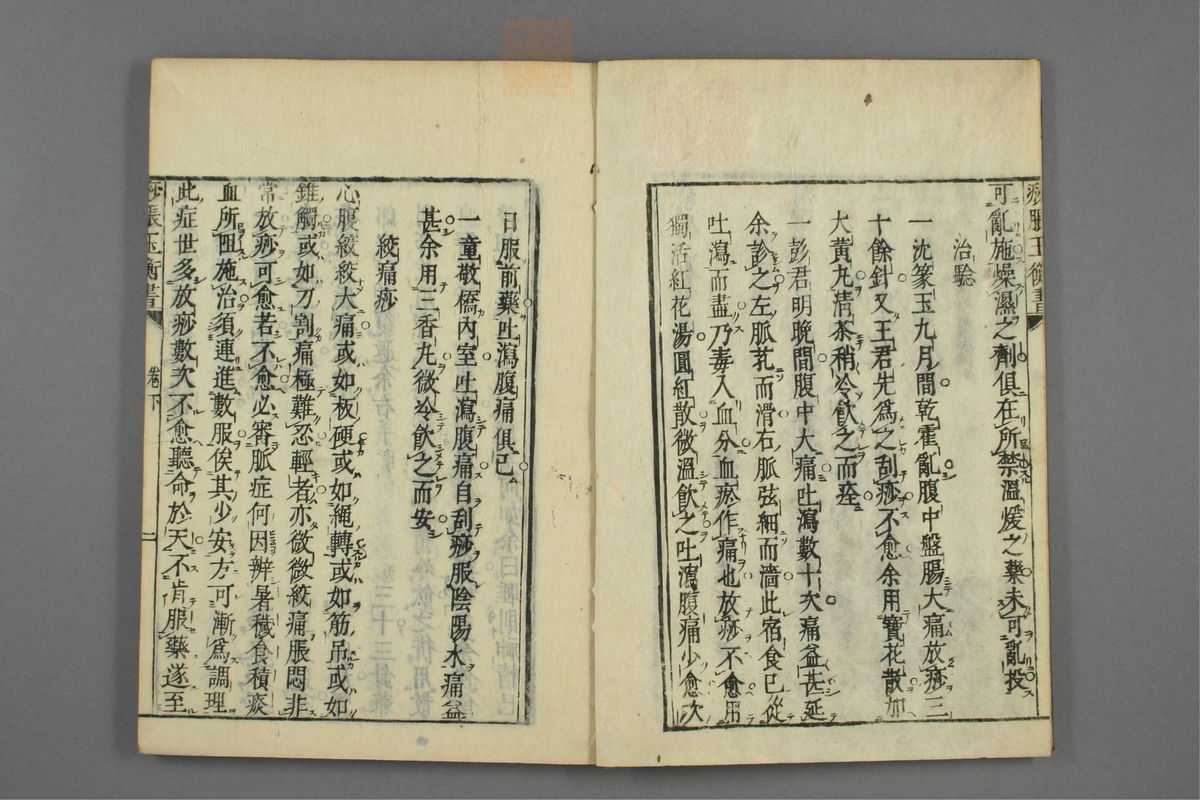 痧脹玉衡書
可亂施燥濕之劑俱在所禁溫煖之藥未可亂投
治驗
一沈篆玉九月間乾霍亂腹中盤腸大痛放痧三
十餘針又王君先爲之刮痧不愈余用寶花散加
大黃丸清茶稍冷飲之而痊
一彭君明晩間腹中大痛吐瀉數十次痛益甚延
余診之左脈芤而滑右脈弦細而濇此宿食已從
吐瀉而盡乃毒入血分血瘀作痛也放痧不愈用
獨活紅花湯圓紅散微溫飲之吐瀉腹痛少愈次
日服前藥吐瀉腹痛俱已
一童敬僑內室吐瀉腹痛自刮痧服陰陽水痛益
甚余用三香丸微冷飲之而安
絞痛痧
心腹絞絞大痛或如板硬或如繩轉或如筋吊或如
錐觸或如刀割痛極難忍輕者亦微微絞痛脹悶非
常放痧可愈若不愈必審脈症何因辨暑穢食積痰
血所阻施治須連進數服俟其少安方可漸爲調理
此症世多放痧數次不愈聽命於天不肯服藥遂至
痧脹玉衡書
卷下
二